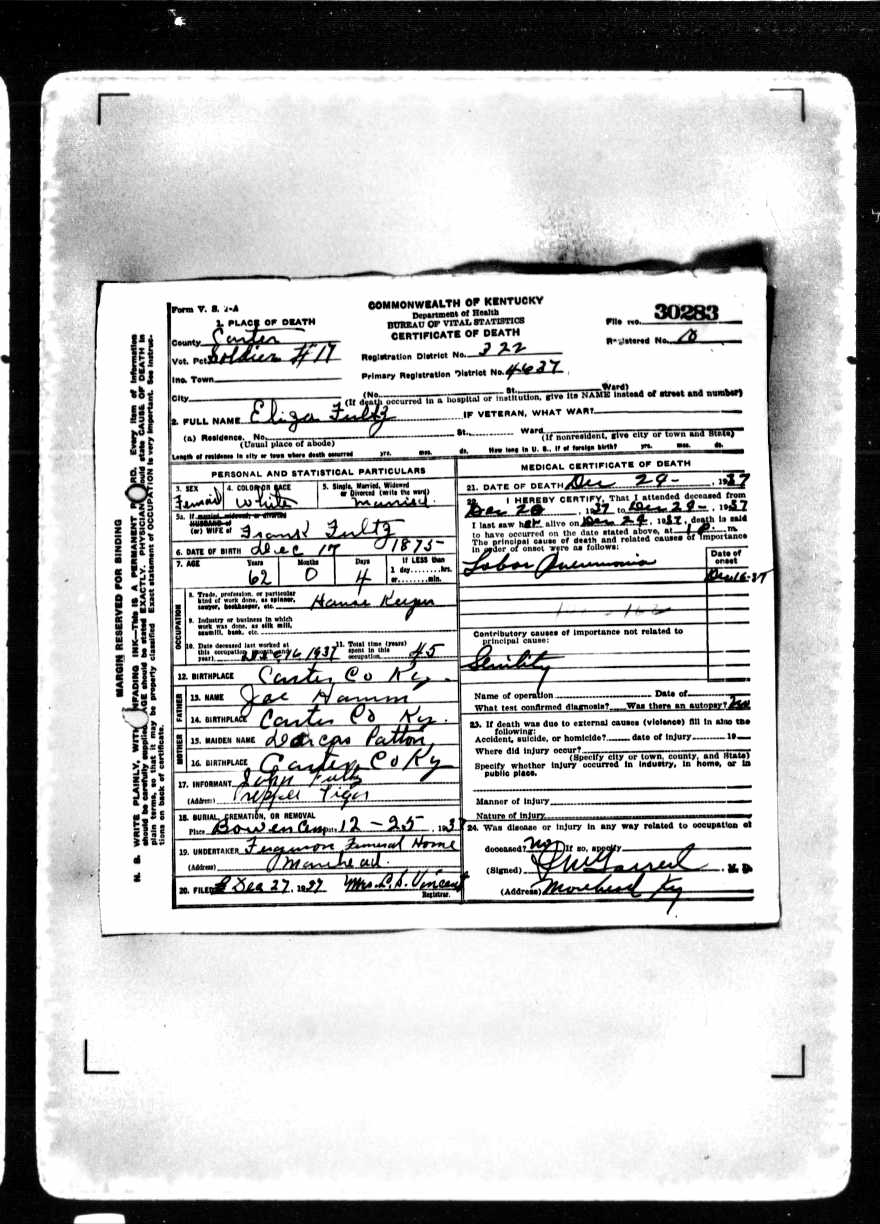 Form V. S. 1-A
COMMONWEALTH OF KENTUCKY
Department of Health
BUREAU OF VITAL STATISTICS
CERTIFICATE OF DEATH
File No. 30283
Registered No.
1. PLACE OF DEATH
County Carter
Vot. Pct. Soldier #17
Inc. Town
City
Registration District No. 322
Primary Registration District No. 4637
(No. St. Ward)
(If death occurred in a hospital or institution, give its NAME instead of street and number)
2. FULL NAME Eliza Fultz IF VETERAN, WHAT WAR?
(a) Residence. No. St. Ward
(Usual place of abode) (If nonresident, give city or town and State)
Length of residence in city or town where death occurred yrs. mos. ds. How long in U. S., if of foreign birth? yrs. mos. ds.
PERSONAL AND STATISTICAL PARTICULARS
3. SEX 4. COLOR OR RACE 5. Single, Married, Widowed
or Divorced (write the word)
Female White Married
5a. If married, widowed, or divorced
HUSBAND of
(or) WIFE of Frank Fultz
6. DATE OF BIRTH Dec 17 1875
7. AGE Years Months Days If LESS than
62 0 4 1 day hrs.
or min.
OCCUPATION
8. Trade, profession, or particular
kind of work done, as spinner,
sawyer, bookkeeper, etc. House Keeper
9. Industry or business in which
work was done, as silk mill,
sawmill, bank, etc.
10. Date deceased last worked at
this occupation (month and
year) 1937
11. Total time (years)
spent in this
occupation 45
12. BIRTHPLACE Carter Co Ky.
FATHER
13. NAME Joe Hamm
14. BIRTHPLACE Carter Co Ky.
MOTHER
15. MAIDEN NAME Darcas Patton
16. BIRTHPLACE Carter Co Ky
17. INFORMANT John Fultz
(Address)
18. BURIAL, CREMATION, OR REMOVAL
Place Bowen Date 12-25, 1937
19. UNDERTAKER Ferguson Funeral Home
(Address) Morehead.
20. FILED Dec 27, 1937 Mrs. L. S. Vincent
Registrar.
MEDICAL CERTIFICATE OF DEATH
21. DATE OF DEATH Dec 24-, 1937
22. I HEREBY CERTIFY, That I attended deceased from
Dec 20, 1937 to Dec 24-, 1937
I last saw her alive on Dec 24, 1937, death is said
to have occurred on the date stated above, at 1 P. m.
The principal cause of death and related causes of importance
in order of onset were as follows:
Date of
onset
Lobar Pneumonia Dec 16-37
Contributory causes of importance not related to
principal cause:
Senility
Name of operation Date of
What test confirmed diagnosis? Was there an autopsy? No
23. If death was due to external causes (violence) fill in also the
following:
Accident, suicide, or homicide? date of injury 19
Where did injury occur?
(Specify city or town, county, and State)
Specify whether injury occurred in industry, in home, or in
public place.
Manner of injury
Nature of injury
24. Was disease or injury in any way related to occupation of
deceased? No If so, specify
(Signed) M. D.
(Address) Morehead Ky
MARGIN RESERVED FOR BINDING
N. B. WRITE PLAINLY, WITH UNFADING INK—This is A PERMANENT RECORD. Every item of information
should be carefully supplied. AGE should be stated EXACTLY. PHYSICIANS should state CAUSE OF DEATH in
plain terms, so that it may be properly classified. Exact statement of OCCUPATION is very important. See instruc-
tions on back of certificate.